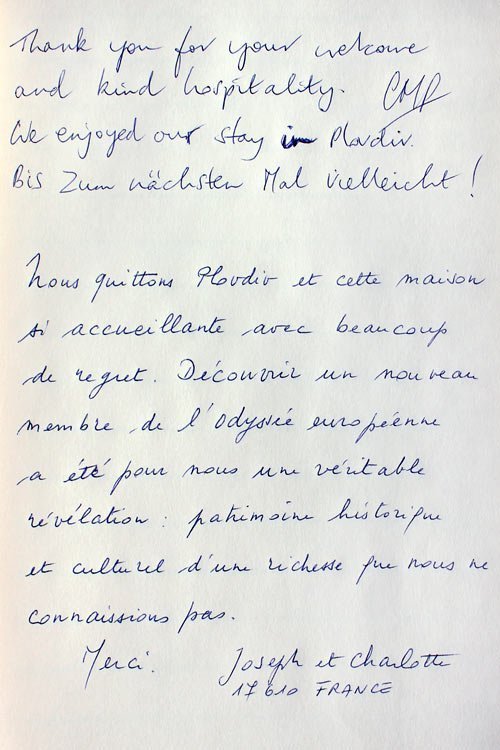 Thank you for your welcome
and kind hospitality.
We enjoyed our stay in Plovdiv.
Bis zum nächsten Mal vielleicht !
Nous quittons Plovdiv et cette maison
si accueillante avec beaucoup
de regret. Découvrir un nouveau
membre de l'Odyssée européenne
a été pour nous une véritable
révélation : patrimoine historique
et culturel d'une richesse que nous ne
connaissions pas.
Merci. Joseph et Charlotte
17610 FRANCE